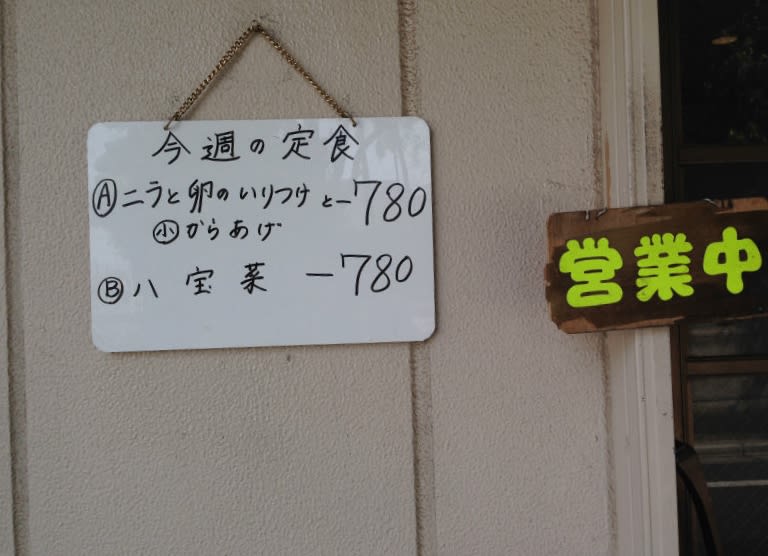 今週の定食
Ⓐニラと卵のいりつけと-780
㊙からあげ
Ⓑ八宝菜 -780
営業中